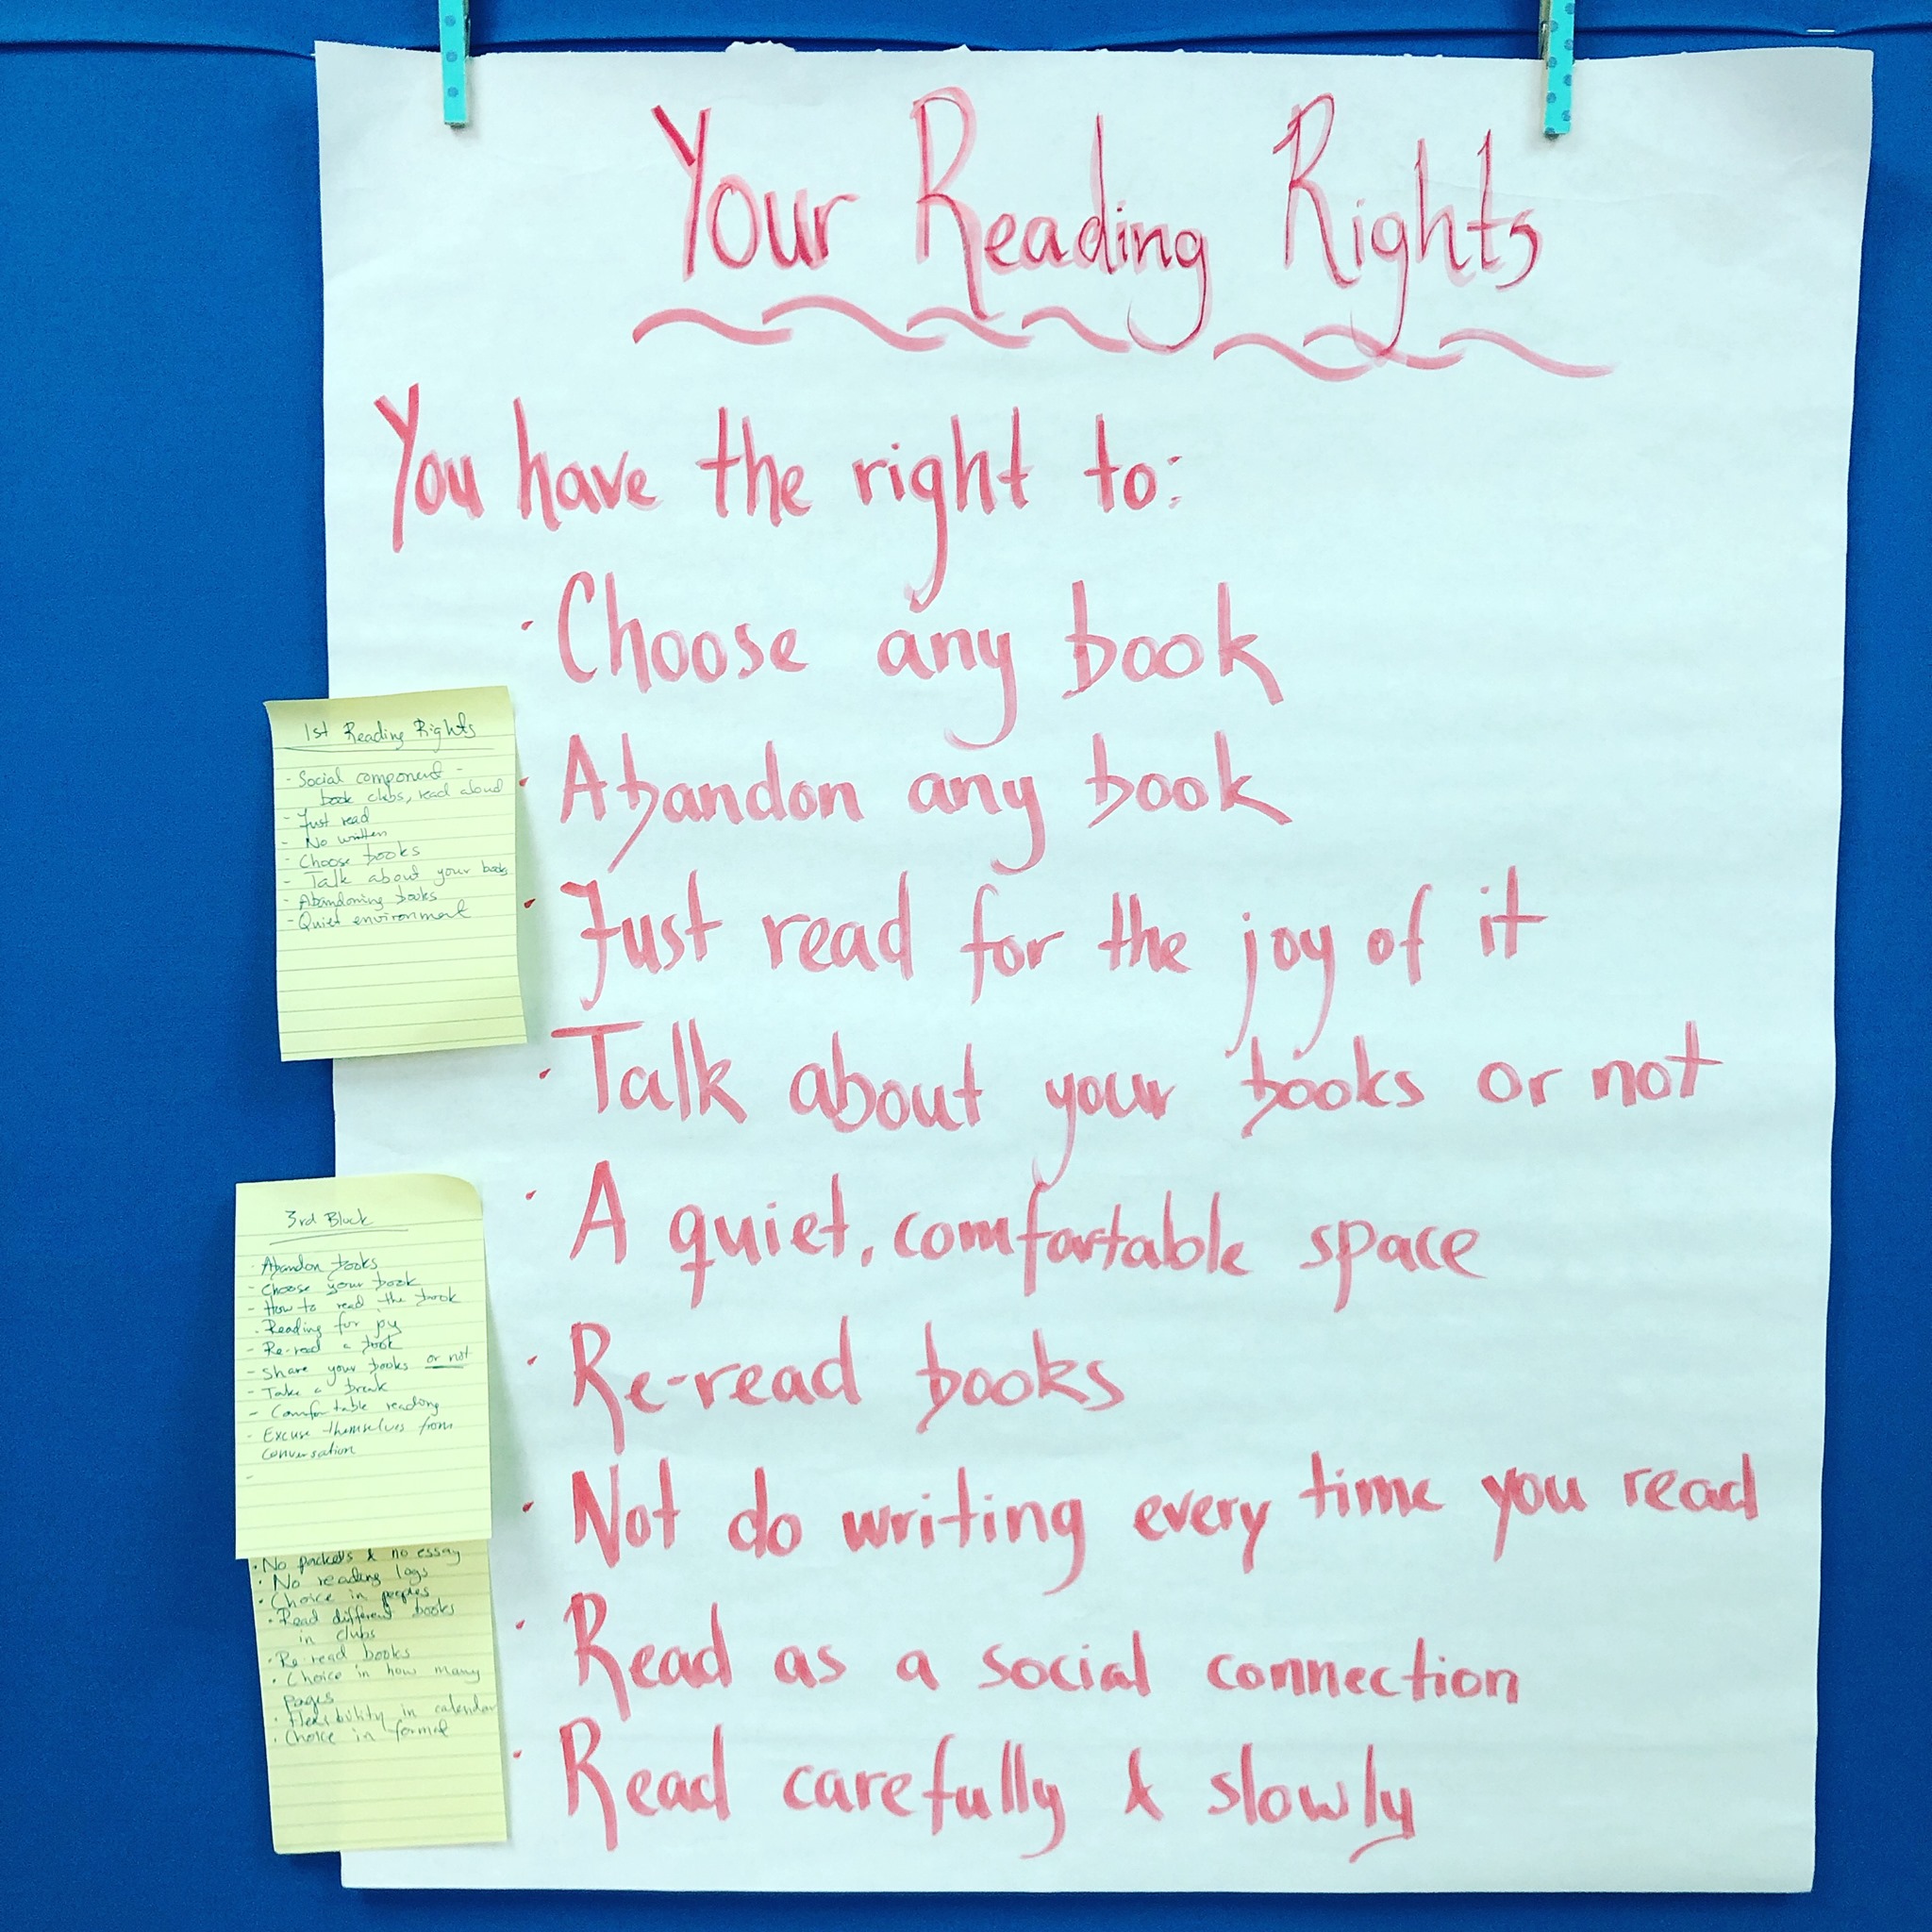 Your Reading Rights
You have the right to:
· Choose any book
· Abandon any book
· Just read for the joy of it
· Talk about your books or not
· A quiet, comfortable space
· Re-read books
· Not do writing every time you read
· Read as a social connection
· Read carefully & slowly
1st Reading Rights
- Social component -
book clubs, read aloud
- Just read
- No written
- Choose books
- Talk about your books
- Abandoning books
- Quiet environment
3rd Block
· Abandon books
- Choose your book
- How to read the book
· Reading for joy
- Re-read a book
- Share your books or not
- Take a break
- Comfortable reading
- Excuse themselves from
conversation
-
· No packets & no essay
· No reading logs
· Choice in peoples
· Read different books
in clubs
· Re read books
· Choice in how many
pages
· Flexibility in calendar
· Choice in format